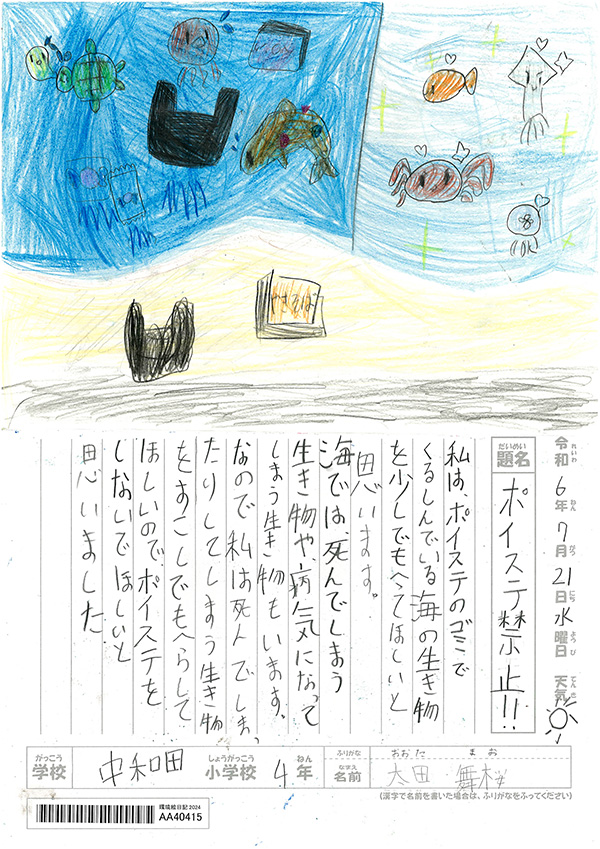 やきそば
令和6年7月21日水曜日 天気
れいわ ねん がつ にち ようび てんき
だいめい
題名
ポイステ禁止!!
私は、ポイステのゴミで
くるしんでいる海の生き物
を少しでもへってほしいと
思います。
海では、死んでしまう
生き物や、病気になって
しまう生き物もいます。
なので私は死んでしまっ
たりしてしまう生き物
をすこしでもへらして
ほしいので、ポイステを
しないでほしいと
思いました
がっこう しょうがっこう ねん
学校 中和田 小学校 4年
ふりがな おおた まお
なまえ
名前 太田 舞桜
(漢字で名前を書いた場合は、ふりがなをふってください)
環境絵日記2024
AA40415